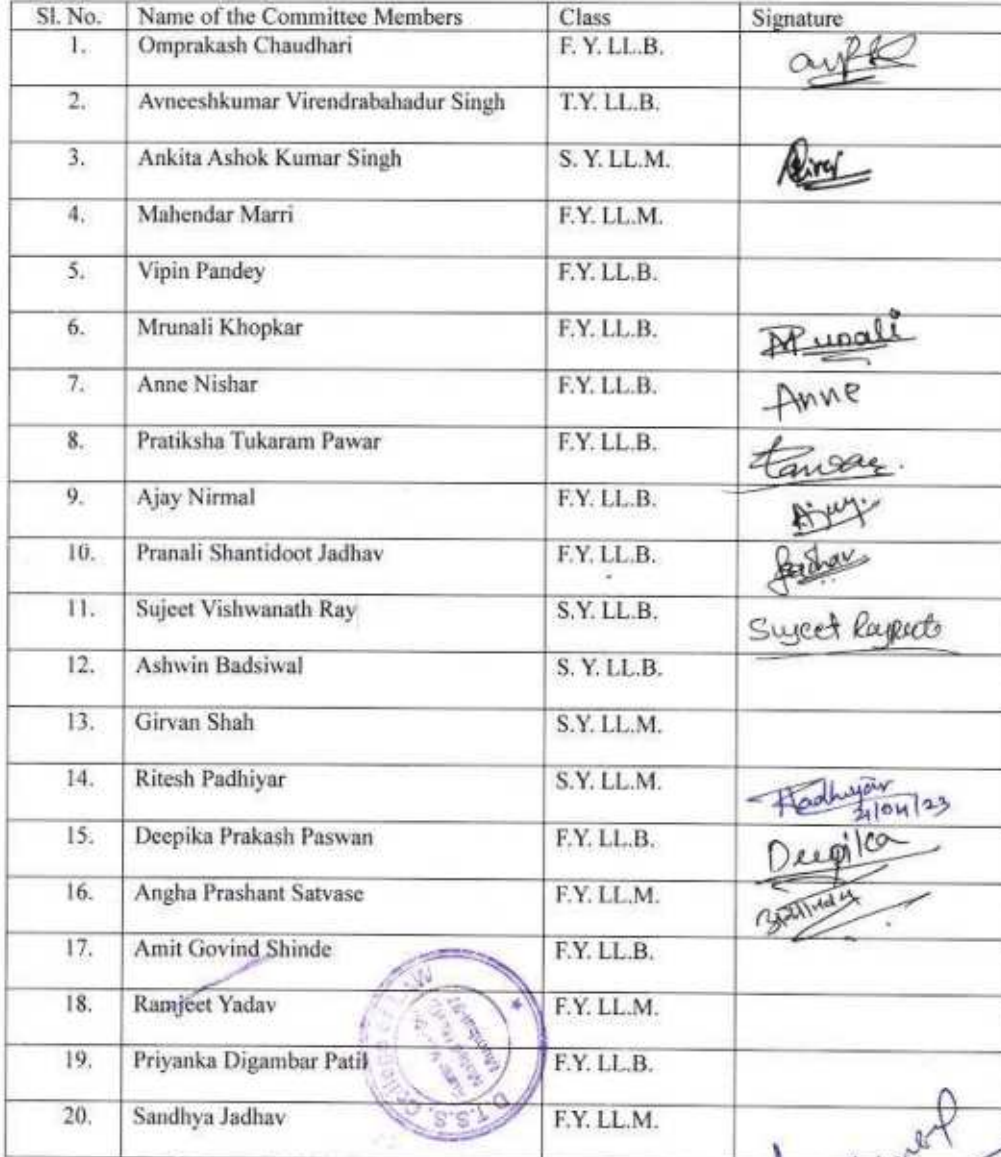 Sl. No. Name of the Committee Members Class Signature
1. Omprakash Chaudhari F. Y. LL.B.
2. Avneeshkumar Virendrabahadur Singh T.Y. LL.B.
3. Ankita Ashok Kumar Singh S. Y. LL.M.
4. Mahendar Marri F.Y. LL.M.
5. Vipin Pandey F.Y. LL.B.
6. Mrunali Khopkar F.Y. LL.B. Mrunali
7. Anne Nishar F.Y. LL.B. Anne
8. Pratiksha Tukaram Pawar F.Y. LL.B.
9. Ajay Nirmal F.Y. LL.B. Ajay.
10. Pranali Shantidoot Jadhav F.Y. LL.B. Jadhav
11. Sujeet Vishwanath Ray S.Y. LL.B. Sujeet
12. Ashwin Badsiwal S. Y. LL.B.
13. Girvan Shah S.Y. LL.M.
14. Ritesh Padhiyar S.Y. LL.M. Padhiyar
15. Deepika Prakash Paswan F.Y. LL.B. Deepika
16. Angha Prashant Satvase F.Y. LL.M.
17. Amit Govind Shinde F.Y. LL.B.
18. Ramjeet Yadav F.Y. LL.M.
19. Priyanka Digambar Patil F.Y. LL.B.
20. Sandhya Jadhav F.Y. LL.M.
D.T.S.S. College of Law